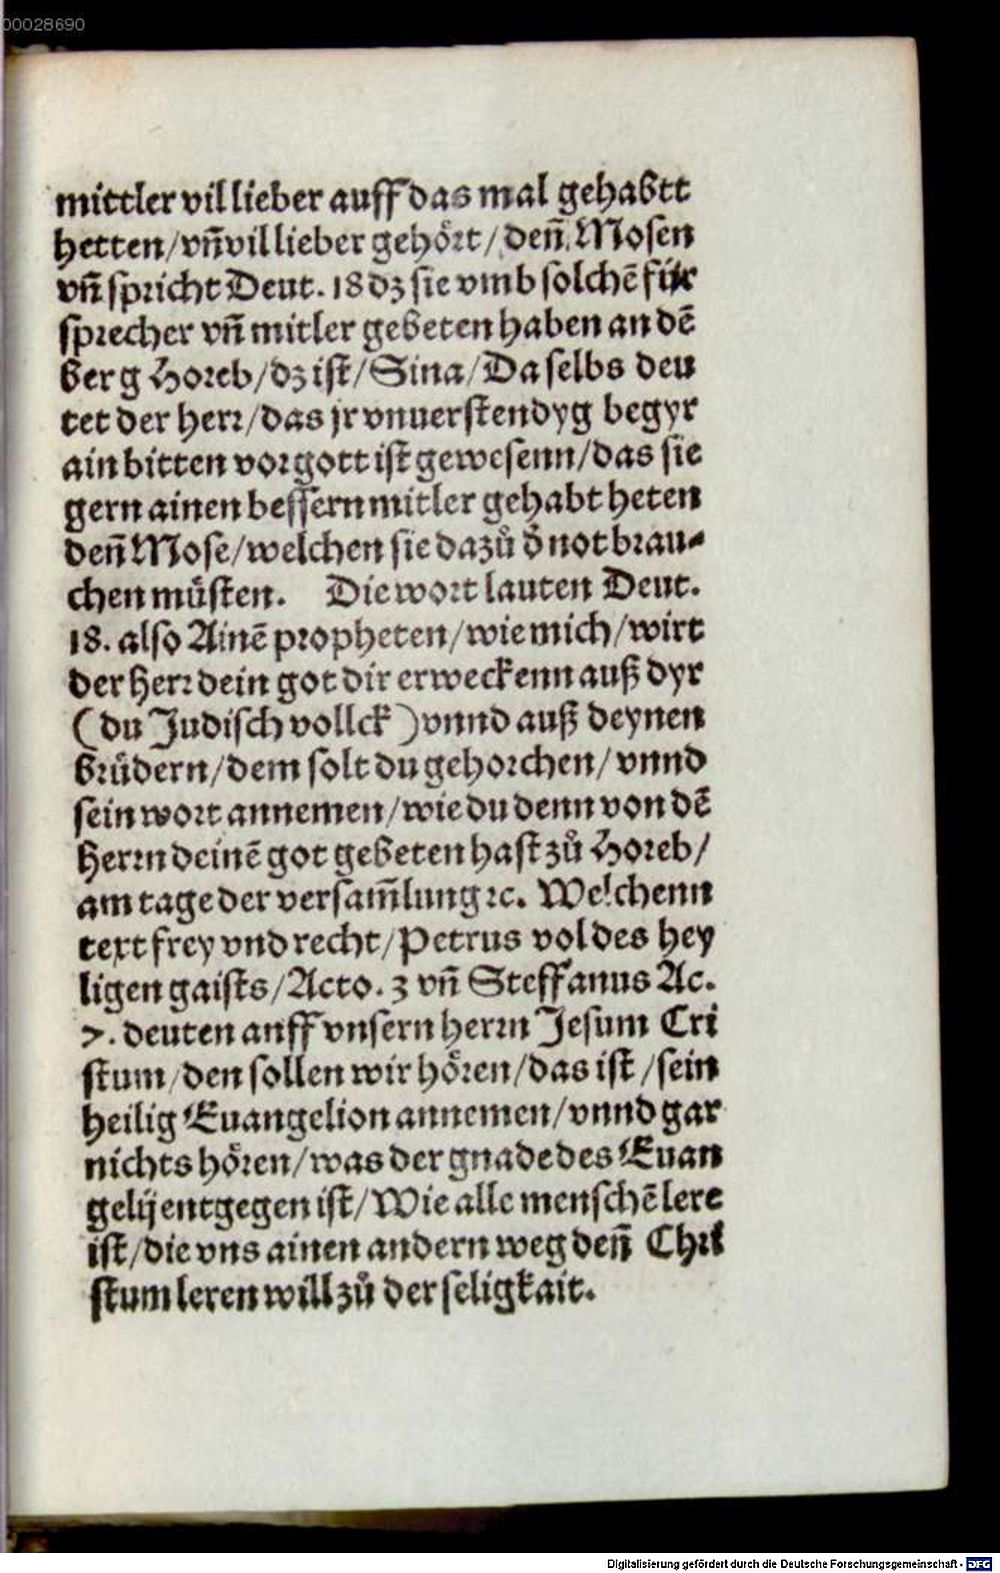 00028690
mittler vil lieber auff das mal gehabtt
hetten/vñ vil lieber gehört/ deñ Mosen
vñ spricht Deut. 18 dz sie vmb solchẽ für
sprecher vñ mitler gebeten haben an dẽ
berg Horeb/dz ist/Sina/Da selbs deu
tet der herr/das jr vnuerstendyg begyr
ain bitten vor gott ist gewesenn/das sie
gern ainen bessern mitler gehabt heten
deñ Mose/welchen sie dazů d̃ not brau-
chen müsten. Die wort lauten Deut.
18. also Ainẽ propheten/wie mich/wirt
der herr dein got dir erweckenn auß dyr
(du Judisch vollck) vnnd auß deynen
brüdern/dem solt du gehorchen/ vnnd
sein wort annemen/wie du denn von dẽ
Herrn deinẽ got gebeten hast zů Horeb/
am tage der versam̃lung ꝛc. Welchenn
text frey vnd recht/Petrus vol des hey
ligen gaists/Acto. 3 vñ Steffanus Ac.
7. deuten anff vnsern herrn Jesum Cri
stum/den sollen wir hören/das ist/sein
heilig Euangelion annemen/vnnd gar
nichts hören/was der gnade des Euan
gelij entgegen ist/Wie alle menschẽ lere
ist/die vns ainen andern weg deñ Chri
stum leren will zů der seligkait.
Digitalisierung gefördert durch die Deutsche Forschungsgemeinschaft - DFG